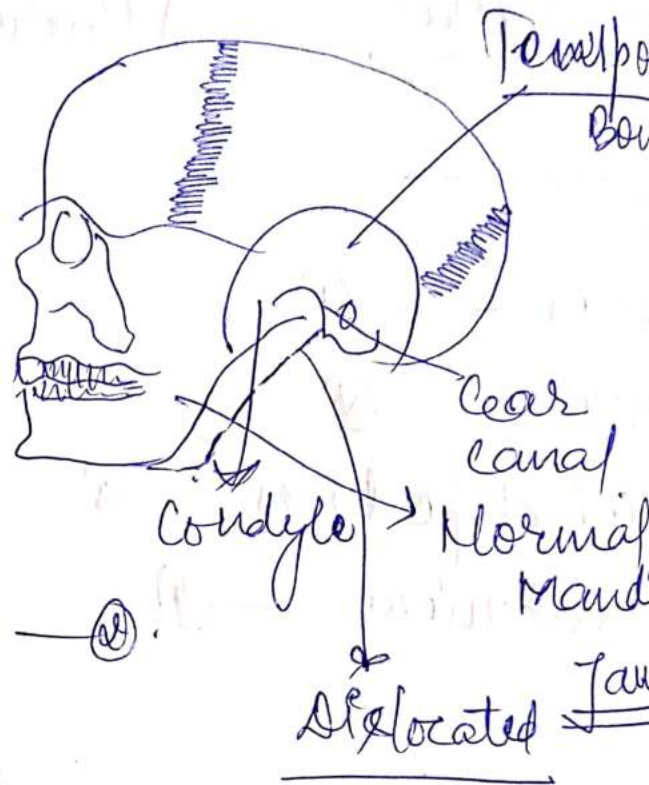 Tempo
Bon
Cear
canal
Condyle
Normal
Mand
②
Dislocated Jaw